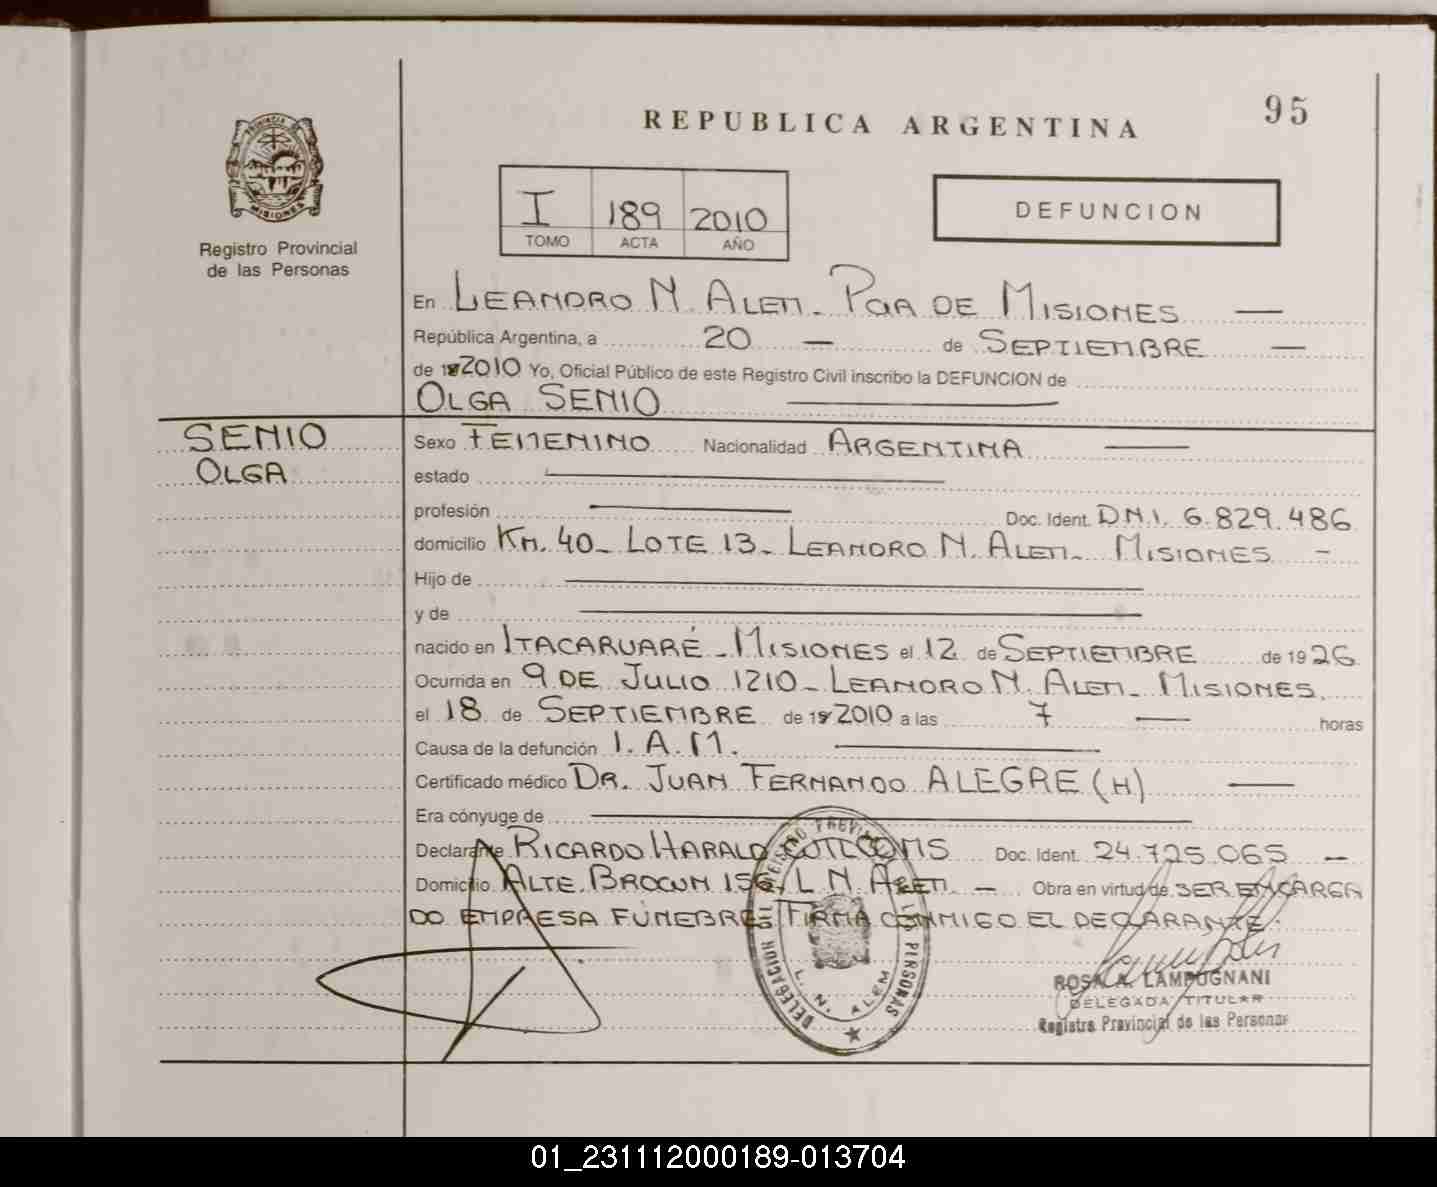 95
REPUBLICA ARGENTINA
PROVINCIA DE MISIONES
Registro Provincial
de las Personas
I 189 2010
TOMO ACTA AÑO
DEFUNCION
En LEANDRO N. ALEM - Pcia DE MISIONES —
República Argentina, a 20 — de SEPTIEMBRE —
de 2010 Yo, Oficial Público de este Registro Civil inscribo la DEFUNCION de
OLGA SENIO
SENIO
OLGA
Sexo FEMENINO Nacionalidad ARGENTINA —
estado —
profesión — Doc. Ident. D.N.I. 6.829.486
domicilio Km. 40 - LOTE 13 - LEANDRO N. ALEM - MISIONES -
Hijo de —
y de —
nacido en ITACARUARÉ - MISIONES el 12 de SEPTIEMBRE de 1926
Ocurrida en 9 DE JULIO 1210 - LEANDRO N. ALEM - MISIONES.
el 18 de SEPTIEMBRE de 2010 a las 7 — horas
Causa de la defunción I.A.M. —
Certificado médico DR. JUAN FERNANDO ALEGRE (H) —
Era cónyuge de —
Declarante RICARDO HARALD Doc. Ident. 24.725.065 —
Domicilio ALTE. BROWN L. N. ALEM - Obra en virtud de SER ENCARGA
DO EMPRESA FUNEBRE. FIRMA CONMIGO EL DECLARANTE.
DELEGACION DEL REGISTRO DE LAS PERSONAS
L. N. ALEM
ROSA A. LAMPUGNANI
DELEGADA TITULAR
Registro Provincial de las Personas
01_231112000189-013704